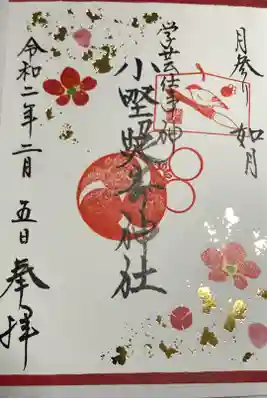 月参り 如月
学芸の神
小野照崎神社
令和二年二月五日
奉拝